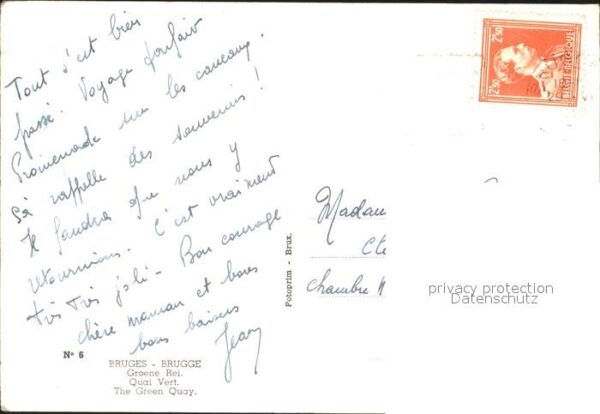 Tout s'est bien
passé. Voyage parfait
Promenade sur les canaux,
Çà rappelle des souvenirs !
Il faudra que nous y
retournions. C'est vraiment
très très joli - Bon courage
chère maman et bons
bons baisers
Jean
No 6
BRUGES - BRUGGE
Groene Rei.
Quai Vert.
The Green Quay.
Fotoprim - Brux.
2F50
2F50
BELGIE-BELGIQUE
Madam
Cle
Chambre N
privacy protection
Datenschutz